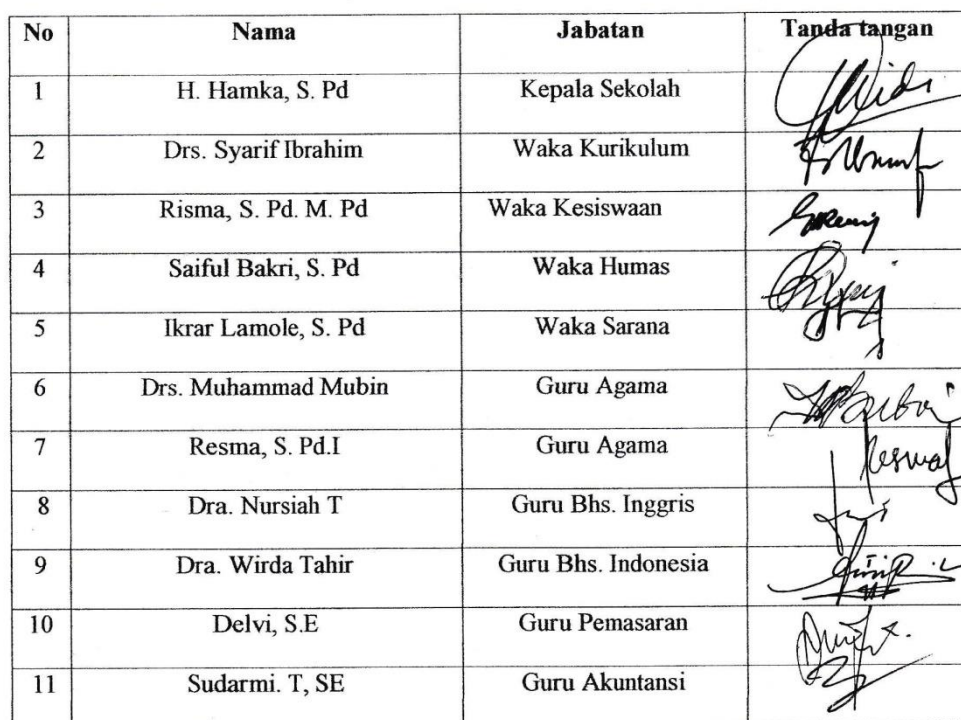 No Nama Jabatan Tanda tangan
1 H. Hamka, S. Pd Kepala Sekolah
2 Drs. Syarif Ibrahim Waka Kurikulum
3 Risma, S. Pd. M. Pd Waka Kesiswaan
4 Saiful Bakri, S. Pd Waka Humas
5 Ikrar Lamole, S. Pd Waka Sarana
6 Drs. Muhammad Mubin Guru Agama
7 Resma, S. Pd.I Guru Agama
8 Dra. Nursiah T Guru Bhs. Inggris
9 Dra. Wirda Tahir Guru Bhs. Indonesia
10 Delvi, S.E Guru Pemasaran
11 Sudarmi. T, SE Guru Akuntansi